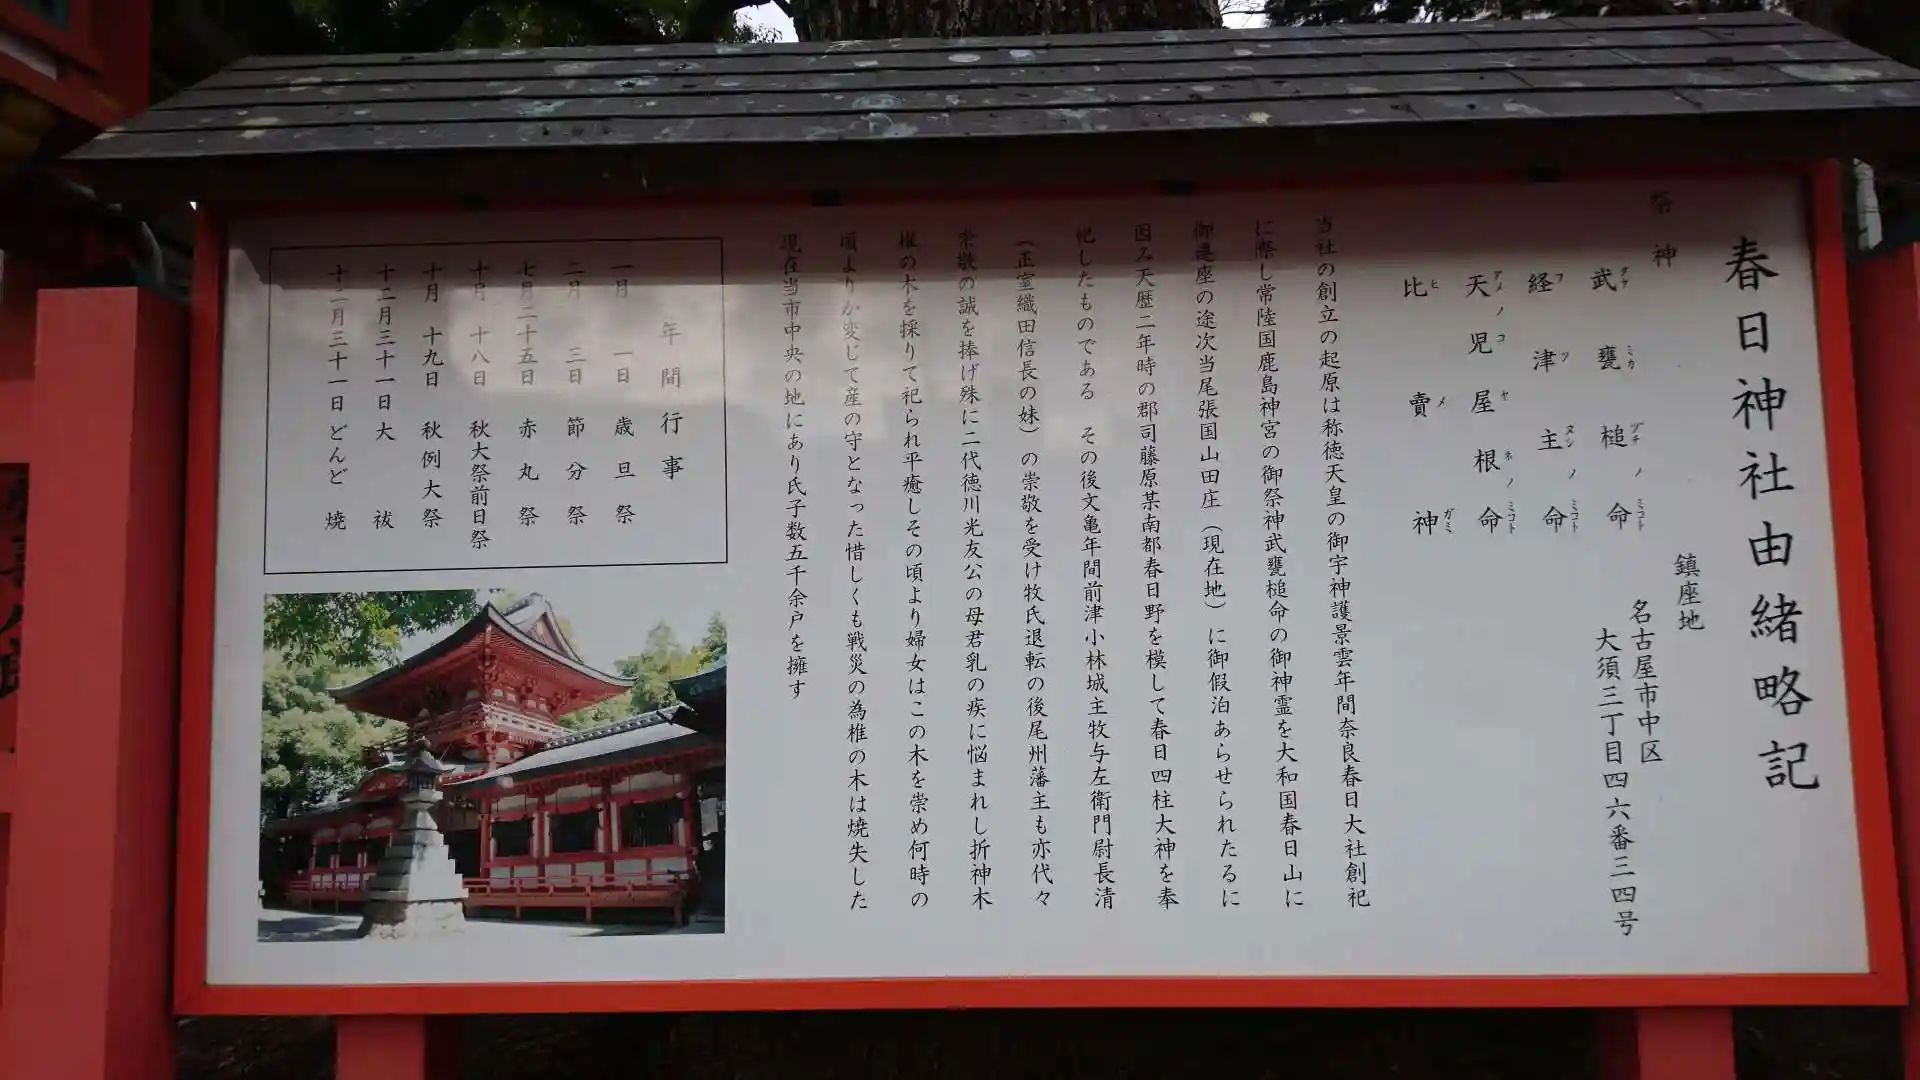 春日神社由緒略記
鎮座地
名古屋市中区
大須三丁目四六番三四号
祭神
武甕槌ノ命
タケミカヅチノミコト
経津主ノ命
フツヌシノミコト
天児屋根命
アメノコヤネノミコト
比賣神
ヒメガミ
当社の創立の起原は称徳天皇の御宇神護景雲年間奈良春日大社創祀
に際し常陸国鹿島神宮の御祭神武甕槌命の御神霊を大和国春日山に
御遷座の途次当尾張国山田庄（現在地）に御假泊あらせられたるに
因み天歴二年時の郡司藤原某南都春日野を模して春日四柱大神を奉
祀したものである その後文亀年間前津小林城主牧与左衛門尉長清
（正室織田信長の妹）の崇敬を受け牧氏退転の後尾州藩主も亦代々
崇敬の誠を捧げ殊に二代徳川光友公の母君乳の疾に悩まれし折神木
椎の木を採りて祀られ平癒しその頃より婦女はこの木を崇め何時の
頃よりか変じて産の守となった惜しくも戦災の為椎の木は焼失した
現在当市中央の地にあり氏子数五千余戸を擁す
年間行事
一月 一日 歳旦祭
二月 三日 節分祭
七月二十五日 赤丸祭
十月 十八日 秋大祭前日祭
十月 十九日 秋例大祭
十二月三十一日 大祓
十二月三十一日 どんど焼